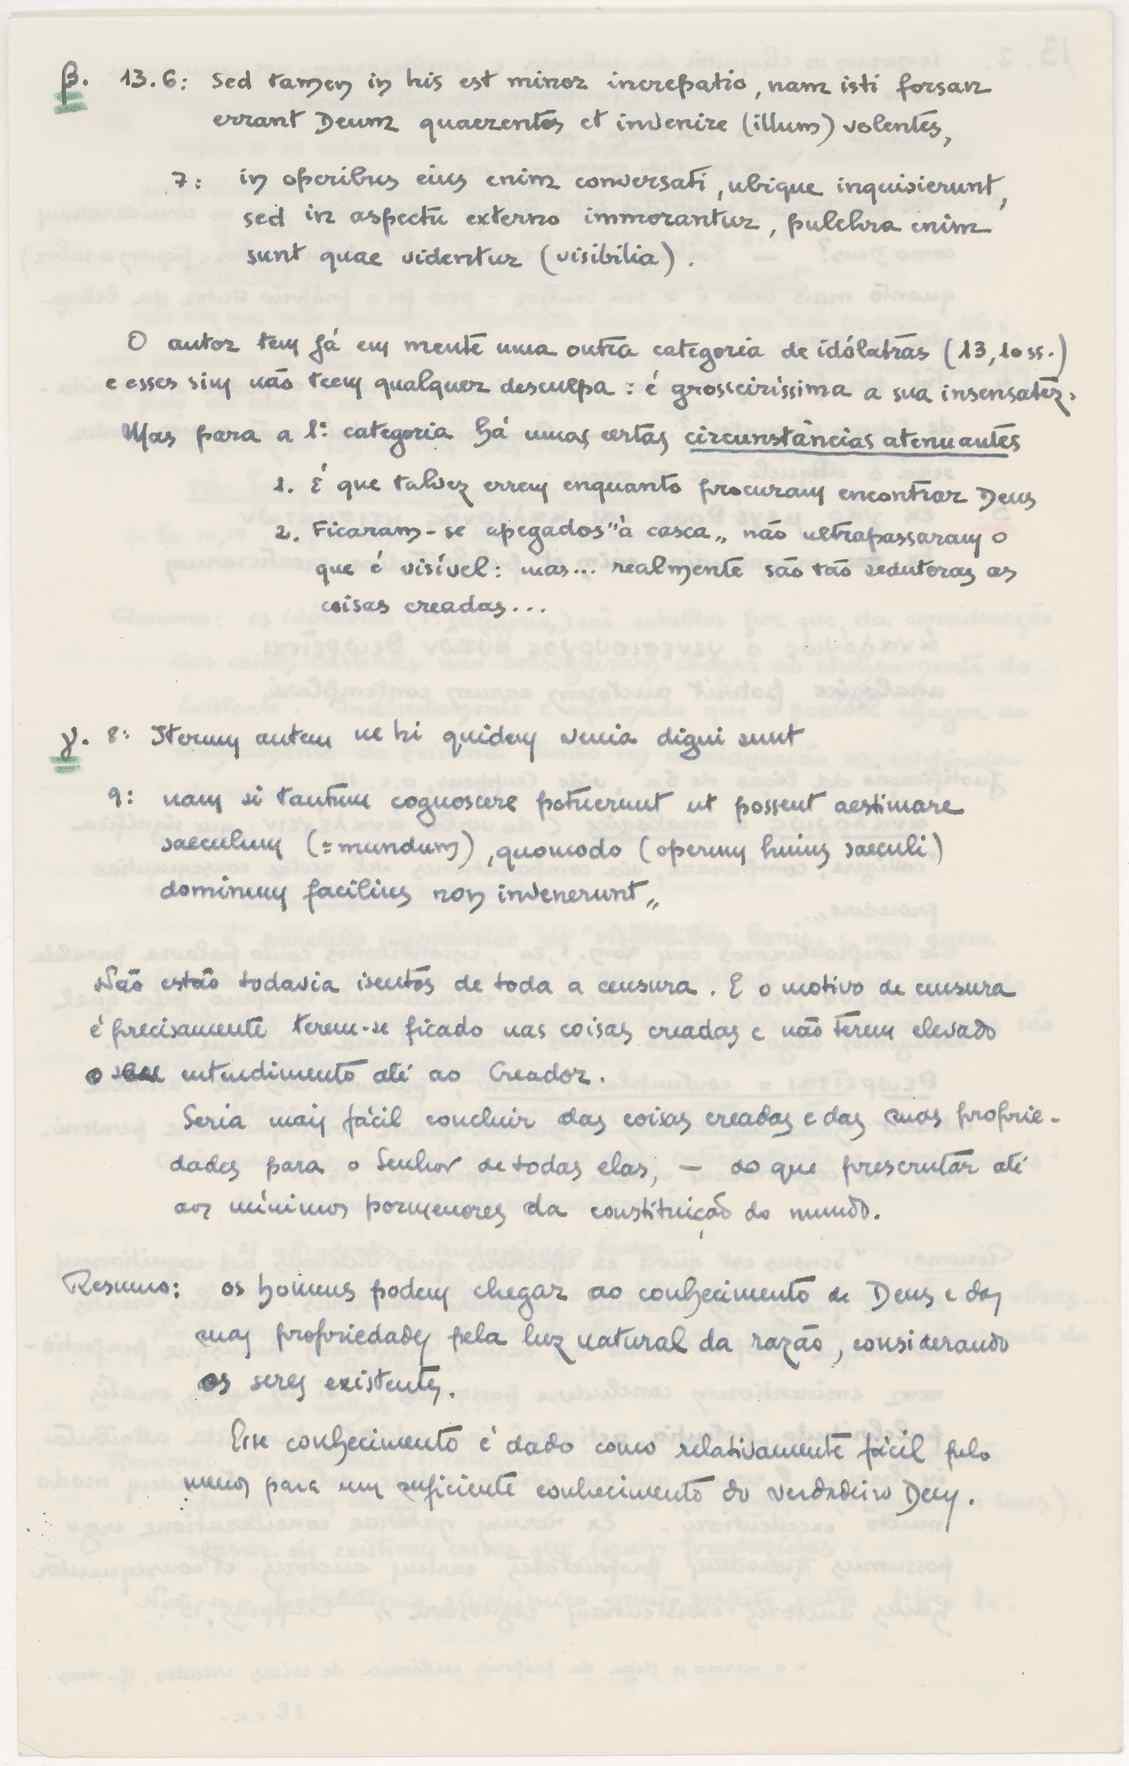 β. 13.6: Sed tamen in his est minor increpatio, nam isti forsan
errant Deum quaerentes et invenire (illum) volentes,
7: in operibus eius enim conversati, ubique inquisierunt,
sed in aspectu externo immorantur, pulchra enim
sunt quae videntur (visibilia).
O autor tem já em mente uma outra categoria de idólatras (13,10 ss.)
e esses sim não teem qualquer desculpa: é grosseiríssima a sua insensatez.
Mas para a 1ª: categoria há umas certas circunstâncias atenuantes
1. É que talvez errem enquanto procuram encontrar Deus
2. Ficaram-se apegados "à casca„ não ultrapassaram o
que é visível: mas... realmente são tão sedutoras as
coisas creadas...
γ. 8: Iterum autem ne hi quidem venia digni sunt
9: nam si tantum cognoscere potuerunt ut possent aestimare
saeculum (=mundum), quomodo (operum huius saeculi)
dominum facilius non invenerunt„
Não estão todavia isentos de toda a censura. E o motivo de censura
é precisamente terem-se ficado nas coisas creadas e não terem elevado
o seu entendimento até ao Creador.
Seria mais fácil concluir das coisas creadas e das suas proprie-
dades para o Senhor de todas elas, — do que prescrutar até
aos mínimos pormenores da constituição do mundo.
Resumo: os homens podem chegar ao conhecimento de Deus e das
suas propriedades pela luz natural da razão, considerando
os seres existentes.
Esse conhecimento é dado como relativamente fácil pelo
menos para um suficiente conhecimento do verdadeiro Deus.